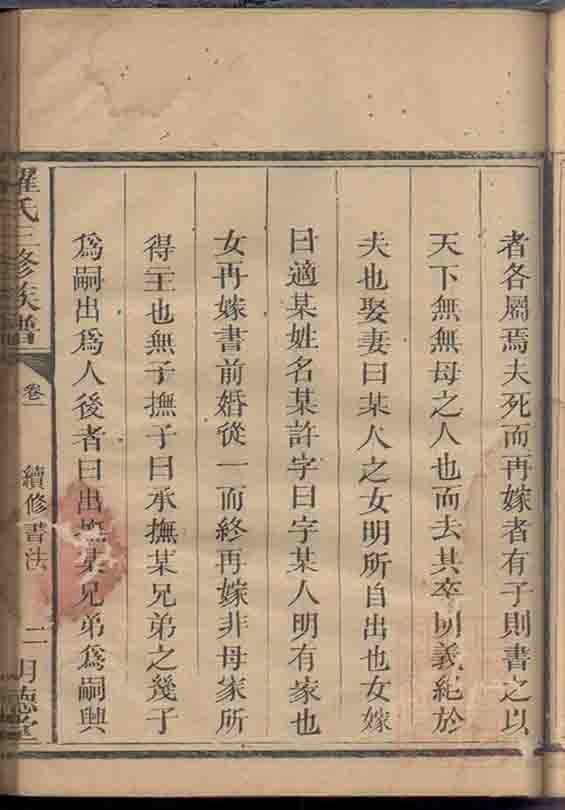 者各屬焉夫死而再嫁者有子則書之以
天下無無母之人也而去其卒明義絕於
夫也娶妻曰某人之女明所自出也女嫁
曰適某姓名某許字曰字某人明有家也
女再嫁書前婚從一而終再嫁非母家所
得主也無子撫子曰承撫某兄弟之幾子
為嗣出為人後者曰出撫某兄弟為嗣與
氏三修族譜
卷一
續修書法
二
明德堂